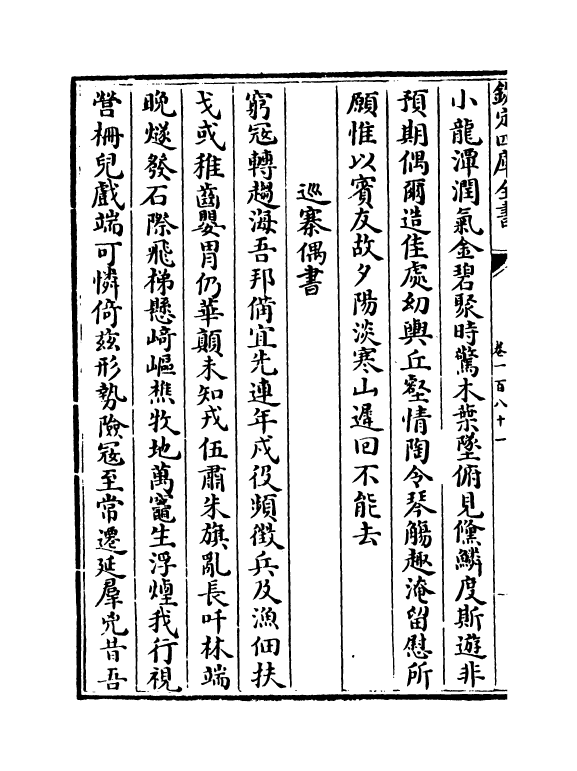 欽定四庫全書
卷一百八十一
小龍潭潤氣金碧聚時驚木葉墜俯見儵鱗度斯遊非
預期偶爾造佳處幼輿丘壑情陶令琴觴趣淹留慰所
願惟以賓友故夕陽淡寒山遲回不能去
巡寨偶書
窮冦轉趨海吾邦備宜先連年戍役頻徴兵及漁佃扶
戈或稚齒嬰胄仍華顛未知戎伍肅朱旗亂長阡林端
晩燧發石際飛梯懸﨑嶇樵牧地萬竈生浮煙我行視
營柵兒戲端可憐倚兹形勢險冦至常遷延羣兇昔吾